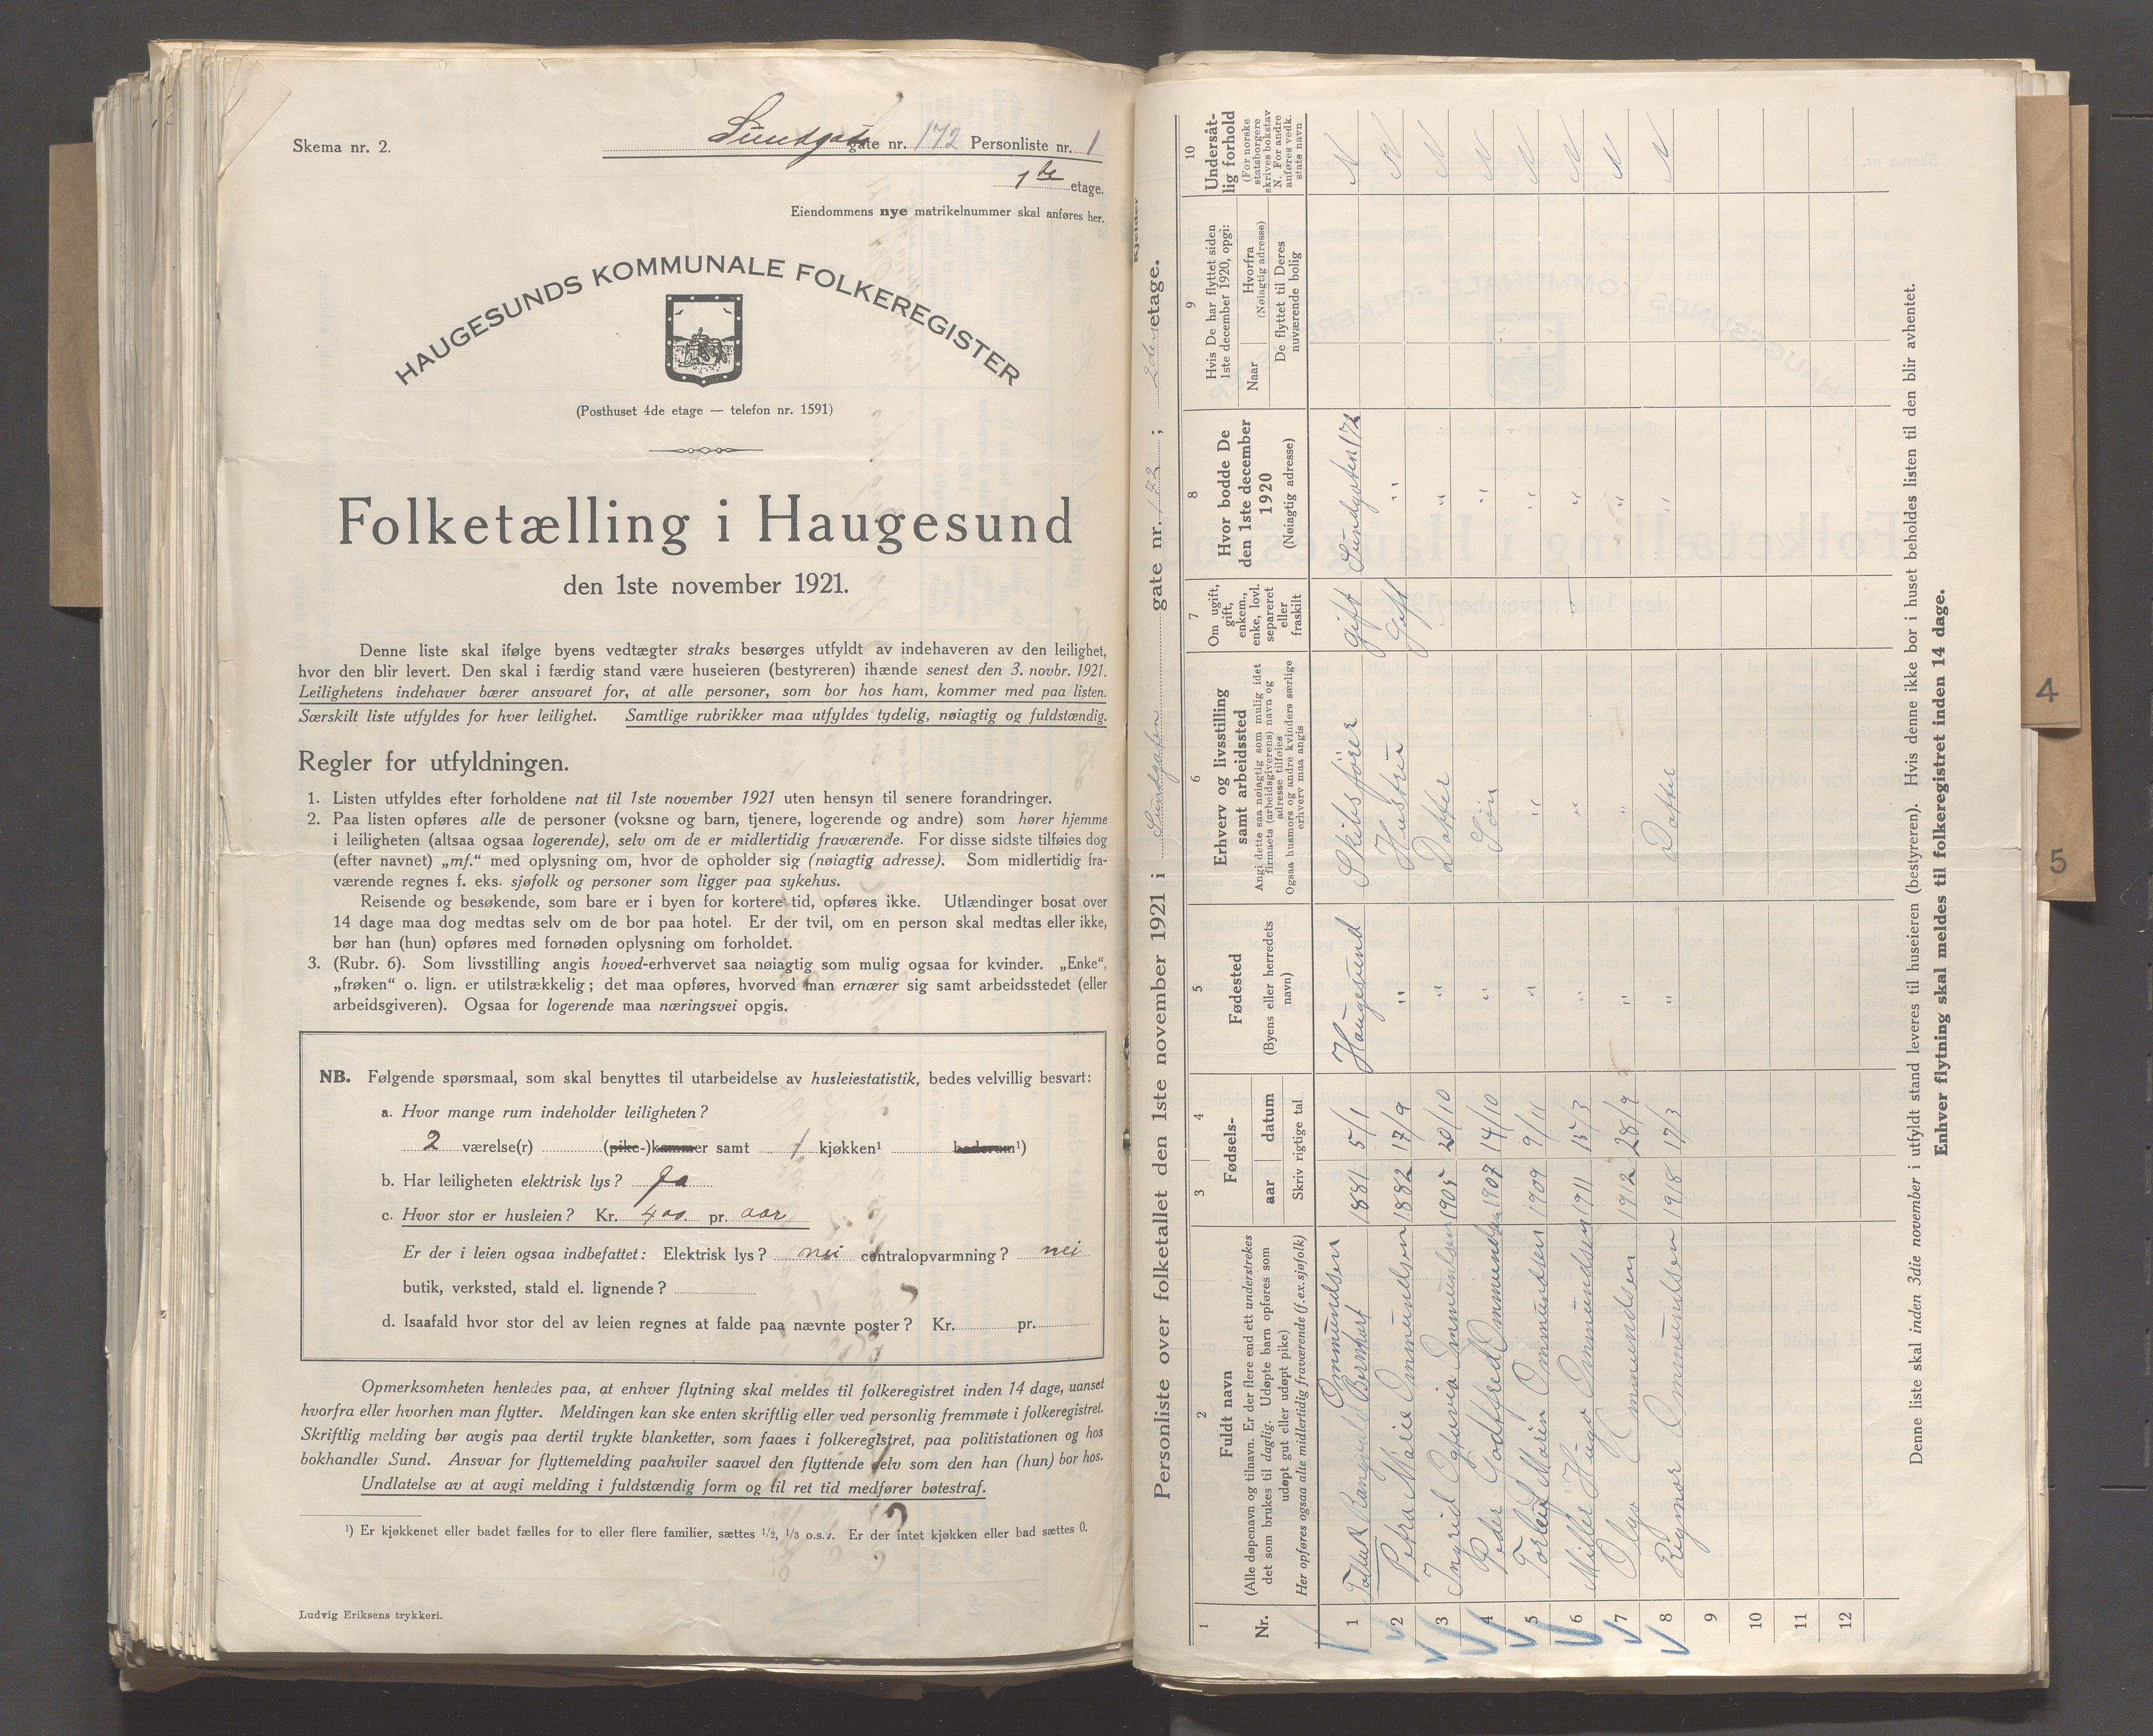 Skema nr. 2.
Sundgata gate nr. 172 Personliste nr. 1
1ste etage.
Eiendommens nye matrikelnummer skal anføres her.
HAUGESUNDS KOMMUNALE FOLKEREGISTER
(Posthuset 4de etage — telefon nr. 1591)
Folketælling i Haugesund
den 1ste november 1921.
Denne liste skal ifølge byens vedtægter straks besørges utfyldt av indehaveren av den leilighet,
hvor den blir levert. Den skal i færdig stand være huseieren (bestyreren) ihænde senest den 3. novbr. 1921.
Leilighetens indehaver bærer ansvaret for, at alle personer, som bor hos ham, kommer med paa listen.
Særskilt liste utfyldes for hver leilighet. Samtlige rubrikker maa utfyldes tydelig, nøiagtig og fuldstændig.
Regler for utfyldningen.
1. Listen utfyldes efter forholdene nat til 1ste november 1921 uten hensyn til senere forandringer.
2. Paa listen opføres alle de personer (voksne og barn, tjenere, logerende og andre) som hører hjemme
i leiligheten (altsaa ogsaa logerende), selv om de er midlertidig fraværende. For disse sidste tilføies dog
(efter navnet) „mf.“ med oplysning om, hvor de opholder sig (nøiagtig adresse). Som midlertidig fra-
værende regnes f. eks. sjøfolk og personer som ligger paa sykehus.
Reisende og besøkende, som bare er i byen for kortere tid, opføres ikke. Utlændinger bosat over
14 dage maa dog medtas selv om de bor paa hotel. Er der tvil, om en person skal medtas eller ikke,
bør han (hun) opføres med fornøden oplysning om forholdet.
3. (Rubr. 6). Som livsstilling angis hoved-erhvervet saa nøiagtig som mulig ogsaa for kvinder. „Enke“,
„frøken“ o. lign. er utilstrækkelig; det maa opføres, hvorved man ernærer sig samt arbeidsstedet (eller
arbeidsgiveren). Ogsaa for logerende maa næringsvei opgis.
NB. Følgende spørsmaal, som skal benyttes til utarbeidelse av husleiestatistik, bedes velvillig besvart:
a. Hvor mange rum indeholder leiligheten?
2 værelse(r) (pike-)kammer samt 1 kjøkken¹ baderum¹)
b. Har leiligheten elektrisk lys? Ja
c. Hvor stor er husleien? Kr. 400. pr. aar
Er der i leien ogsaa indbefattet: Elektrisk lys? nei centralopvarmning? nei
butik, verksted, stald el. lignende?
d. Isaafald hvor stor del av leien regnes at falde paa nævnte poster? Kr. pr.
Opmerksomheten henledes paa, at enhver flytning skal meldes til folkeregistret inden 14 dage, uanset
hvorfra eller hvorhen man flytter. Meldingen kan ske enten skriftlig eller ved personlig fremmøte i folkeregistret.
Skriftlig melding bør avgis paa dertil trykte blanketter, som faaes i folkeregistret, paa politistationen og hos
bokhandler Sund. Ansvar for flyttemelding paahviler saavel den flyttende selv som den han (hun) bor hos.
Undlatelse av at avgi melding i fuldstændig form og til ret tid medfører bøtestraf.
¹) Er kjøkkenet eller badet fælles for to eller flere familier, sættes 1/2, 1/3 o.s.v. Er der intet kjøkken eller bad sættes 0.
Ludvig Eriksens trykkeri.
Personliste over folketallet den 1ste november 1921 i Sundgaten gate nr. 172; 2den etage.
1 2 3 4 5 6 7 8 9 10
Nr.
Fuldt navn
(Alle døpenavn og tilnavn. Er der flere end ett understrekes
det som brukes til daglig. Udøpte barn opføres som
udøpt gut eller udøpt pike)
Her opføres ogsaa alle midlertidig fraværende (f.ex. sjøfolk)
Fødsels-
aar datum
Skriv rigtige tal
Fødested
(Byens eller herredets
navn)
Erhverv og livsstilling
samt arbeidssted
Angi dette saa nøiagtig som mulig idet
firmaets (arbeidsgiverens) navn og
adresse tilføies
Ogsaa husmors og andre kvinders særlige
erhverv maa angis
Om ugift,
gift,
enkem.,
enke, lovl.
separeret
eller
fraskilt
Hvor bodde De
den 1ste december
1920
(Nøiagtig adresse)
Hvis De har flyttet siden
1ste december 1920, opgi:
Naar
Hvorfra
(Nøiagtig adresse)
De flyttet til Deres
nuværende bolig
Undersåt-
lig forhold
(For norske
statsborgere
skrives bokstav
N. For andre
anføres vedk.
stats navn
Ommundsen
1 Bernhart 1881 5/1 Haugesund Skibsfører gift Sundgaten 172 N
2 Petra Marie Ommundsen 1882 17/9 " Hustru Gift " N
3 Ingrid Ommundsen 1905 20/10 " Datter " N
4 Peder Godtfred Ommundsen 1907 14/10 " Søn " N
5 Torleif Marin Ommundsen 1909 9/11 " " " N
6 Hugo Ommundsen 1911 15/3 " " " N
7 Olga Ommundsen 1912 28/9 " " " N
8 Ragnar Ommundsen 1918 17/3 " Datter " N
9
10
11
12
Denne liste skal inden 3die november i utfyldt stand leveres til huseieren (bestyreren). Hvis denne ikke bor i huset beholdes listen til den blir avhentet.
Enhver flytning skal meldes til folkeregistret inden 14 dage.
4
5